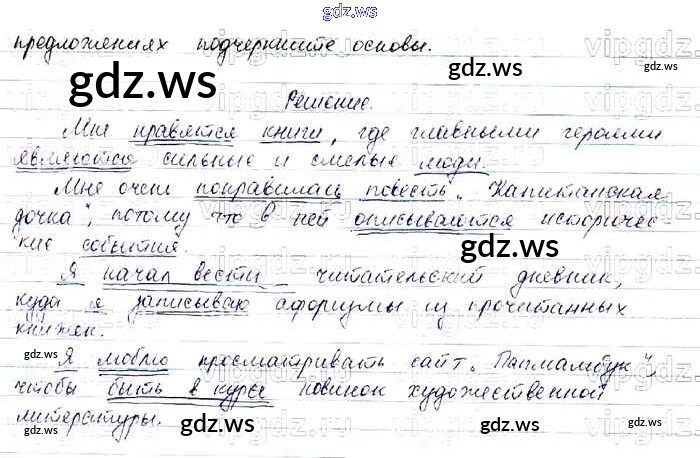 gdz.ws
предложениях подчеркните основы.
Решение.
Мне нравятся книги, где главными героями
являются сильные и смелые люди.
Мне очен понравилась повесть „Капитанская
дочка", потому что в ней описываются историчес-
кие события.
Я начал вести читательский дневник,
куда я записываю афоризмы из прочитанных
книжек.
Я люблю просматривать сайт „Папмамбук",
чтобы быть в курсе новинок художественной
литературы.